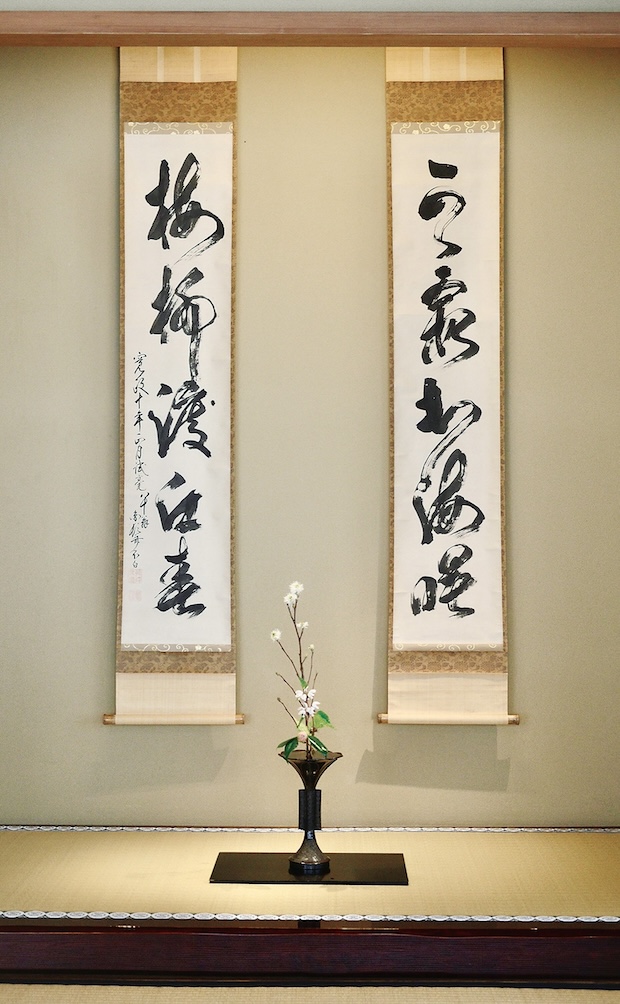 雲霞出海曙
梅柳渡江春
寛政十年正月試毫